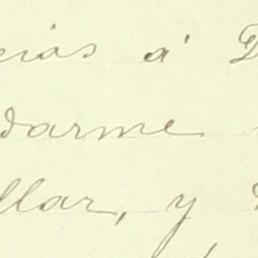 cias á D
darme
llar, y